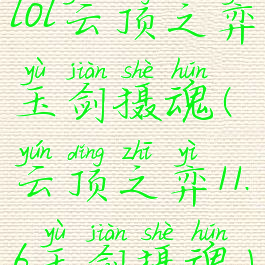 lol云顶之弈
yù jiàn shè hún
玉剑摄魂(
yún dǐng zhī yì
云顶之弈11.
yù jiàn shè hún
6玉剑摄魂)